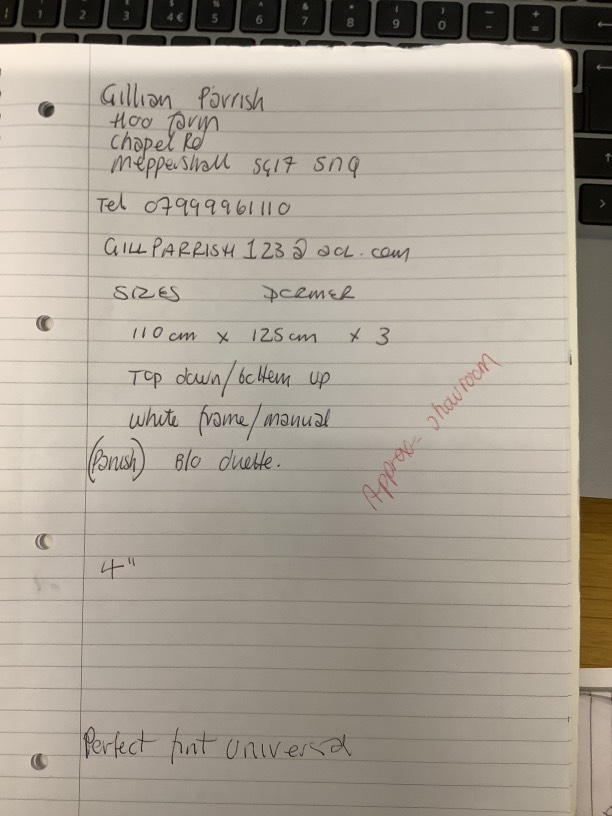 1 2 3 4 € 5 6 7 8 9 0 - =
Gillian Parrish
Hoo Farm
Chapel Rd
Meppershall SG17 5NQ
Tel 07999961110
GILLPARRISH123@aol.com
SIZES DORMER
110cm x 125cm x 3
Top down/bottom up
White frame/manual
(Parish) B/O duette.
Approx- showroom
4"
Perfect fint universal